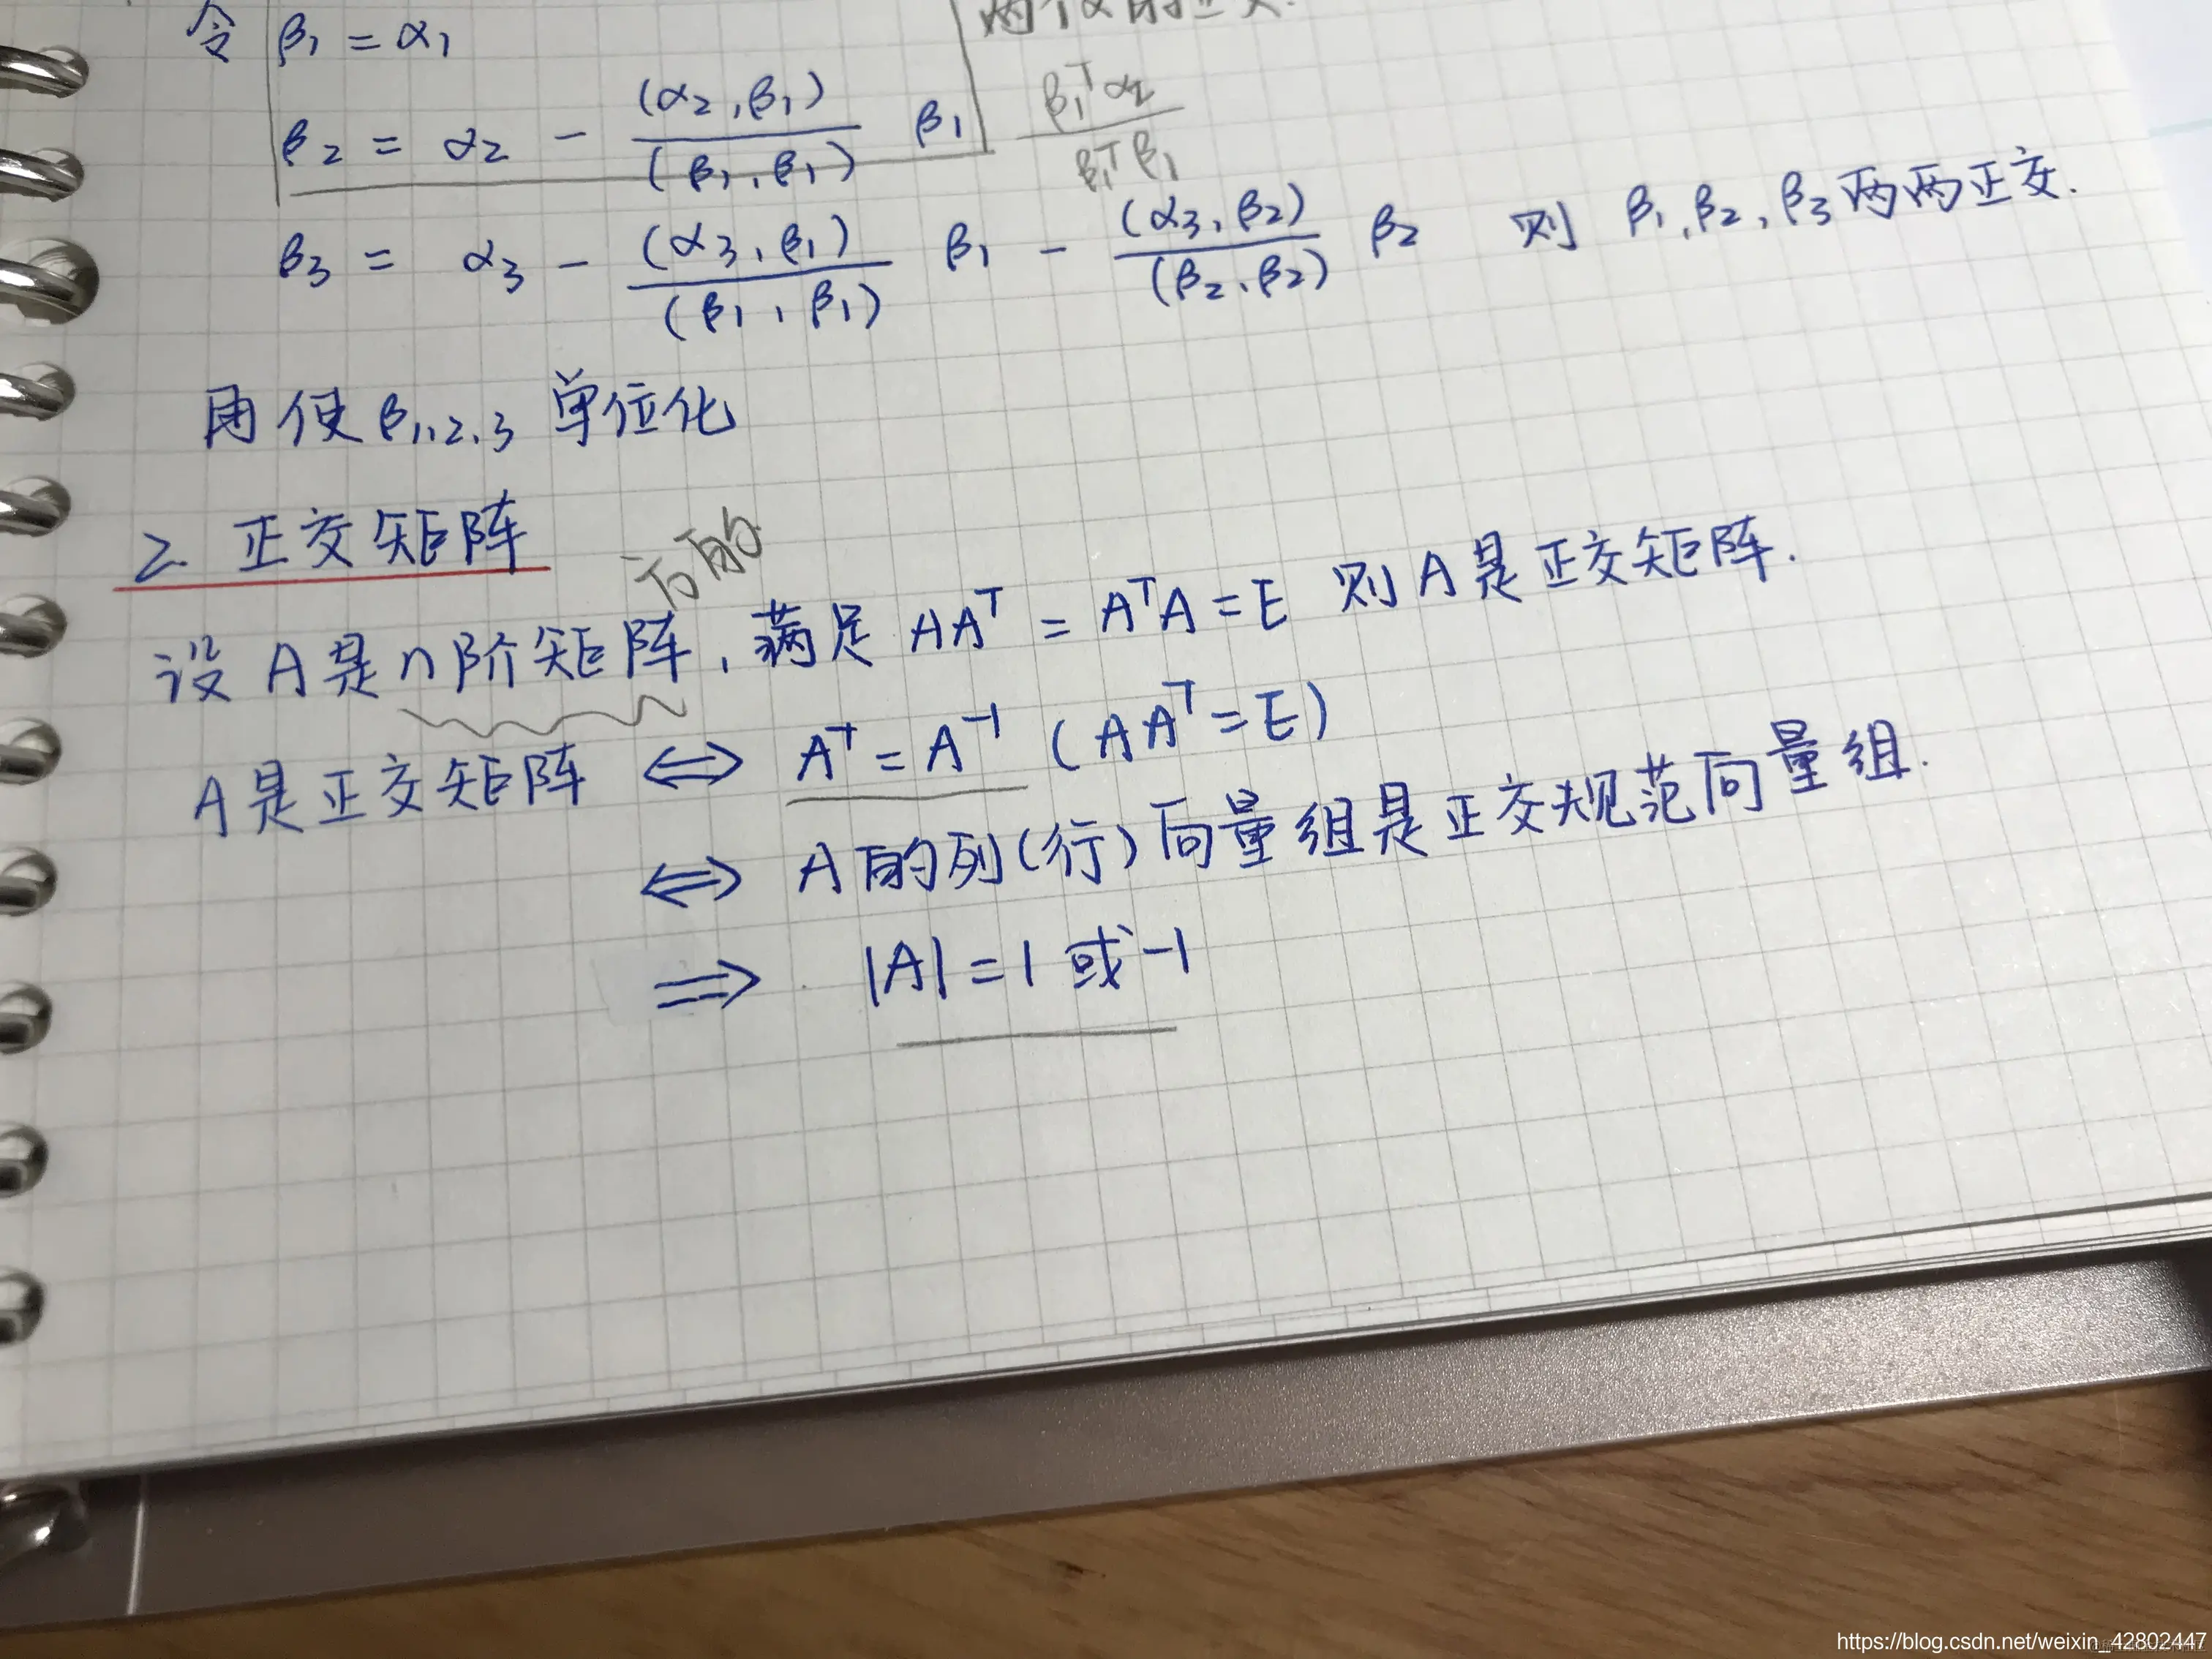 令 β₁ = α₁
两个α的正交.
β₂ = α₂ - (α₂,β₁)/(β₁,β₁) β₁
β₁ᵀα₂/β₁ᵀβ₁
β₃ = α₃ - (α₃,β₁)/(β₁,β₁) β₁ - (α₃,β₂)/(β₂,β₂) β₂ 则 β₁,β₂,β₃两两正交.
再使β₁,₂,₃ 单位化
2. 正交矩阵
方的
设A是n阶矩阵,满足 AAᵀ = AᵀA = E 则A是正交矩阵.
A是正交矩阵 ⟺ Aᵀ = A⁻¹ (AAᵀ = E)
⟺ A的列(行)向量组是正交规范向量组.
⟹ |A| = 1 或 -1
https://blog.csdn.net/weixin_42802447